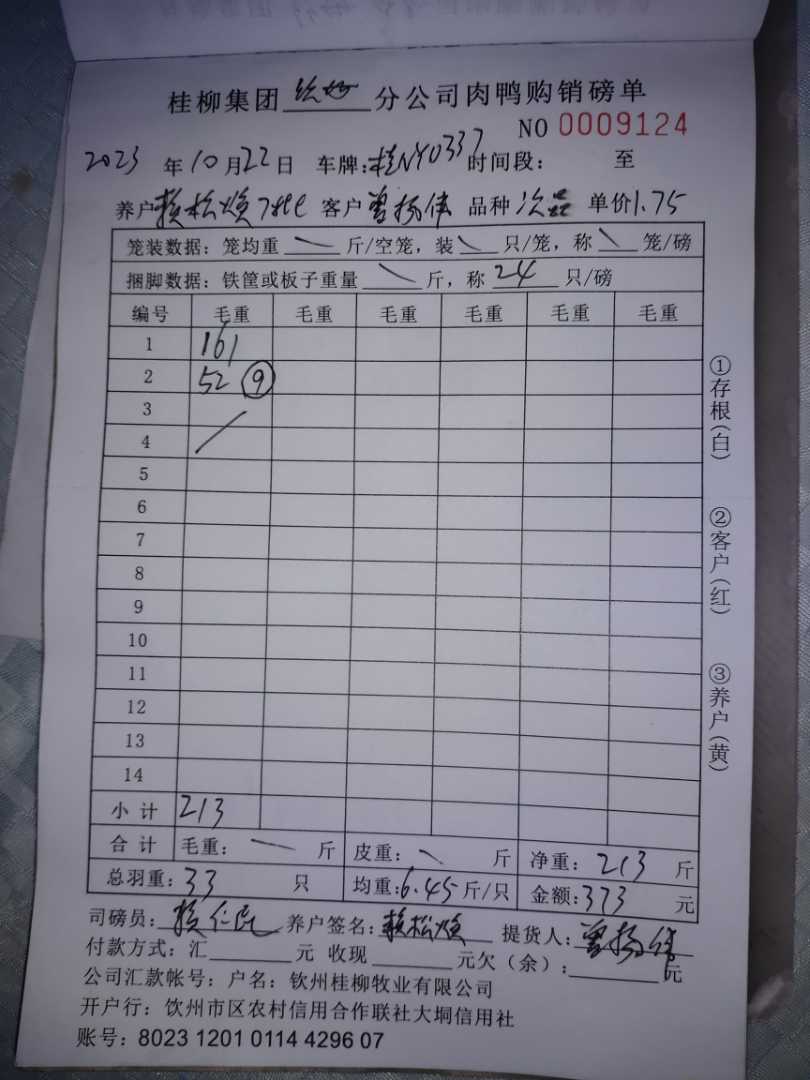 桂柳集团 分公司肉鸭购销磅单
NO 0009124
2023 年 10 月 22 日 车牌:桂NY0337 时间段: 至
养户 赖松焕 客户 曾扬伟 品种 次品 单价 1.75
笼装数据: 笼均重 \ 斤/空笼, 装 \ 只/笼, 称 \ 笼/磅
捆脚数据: 铁筐或板子重量 \ 斤, 称 24 只/磅
编号 毛重 毛重 毛重 毛重 毛重 毛重
1 161
2 52 ⑨
3
4 /
5
6
7
8
9
10
11
12
13
14
小计 213
合计 毛重: — 斤 皮重: \ 斤 净重: 213 斤
总羽重: 33 只 均重: 6.45 斤/只 金额: 373 元
司磅员: 赖仁民 养户签名: 赖松焕 提货人: 曾扬伟
付款方式: 汇 元 收现 元欠(余): 元
公司汇款帐号: 户名: 钦州桂柳牧业有限公司
开户行: 饮州市区农村信用合作联社大垌信用社
账号: 8023 1201 0114 4296 07
①存根(白) ②客户(红) ③养户(黄)